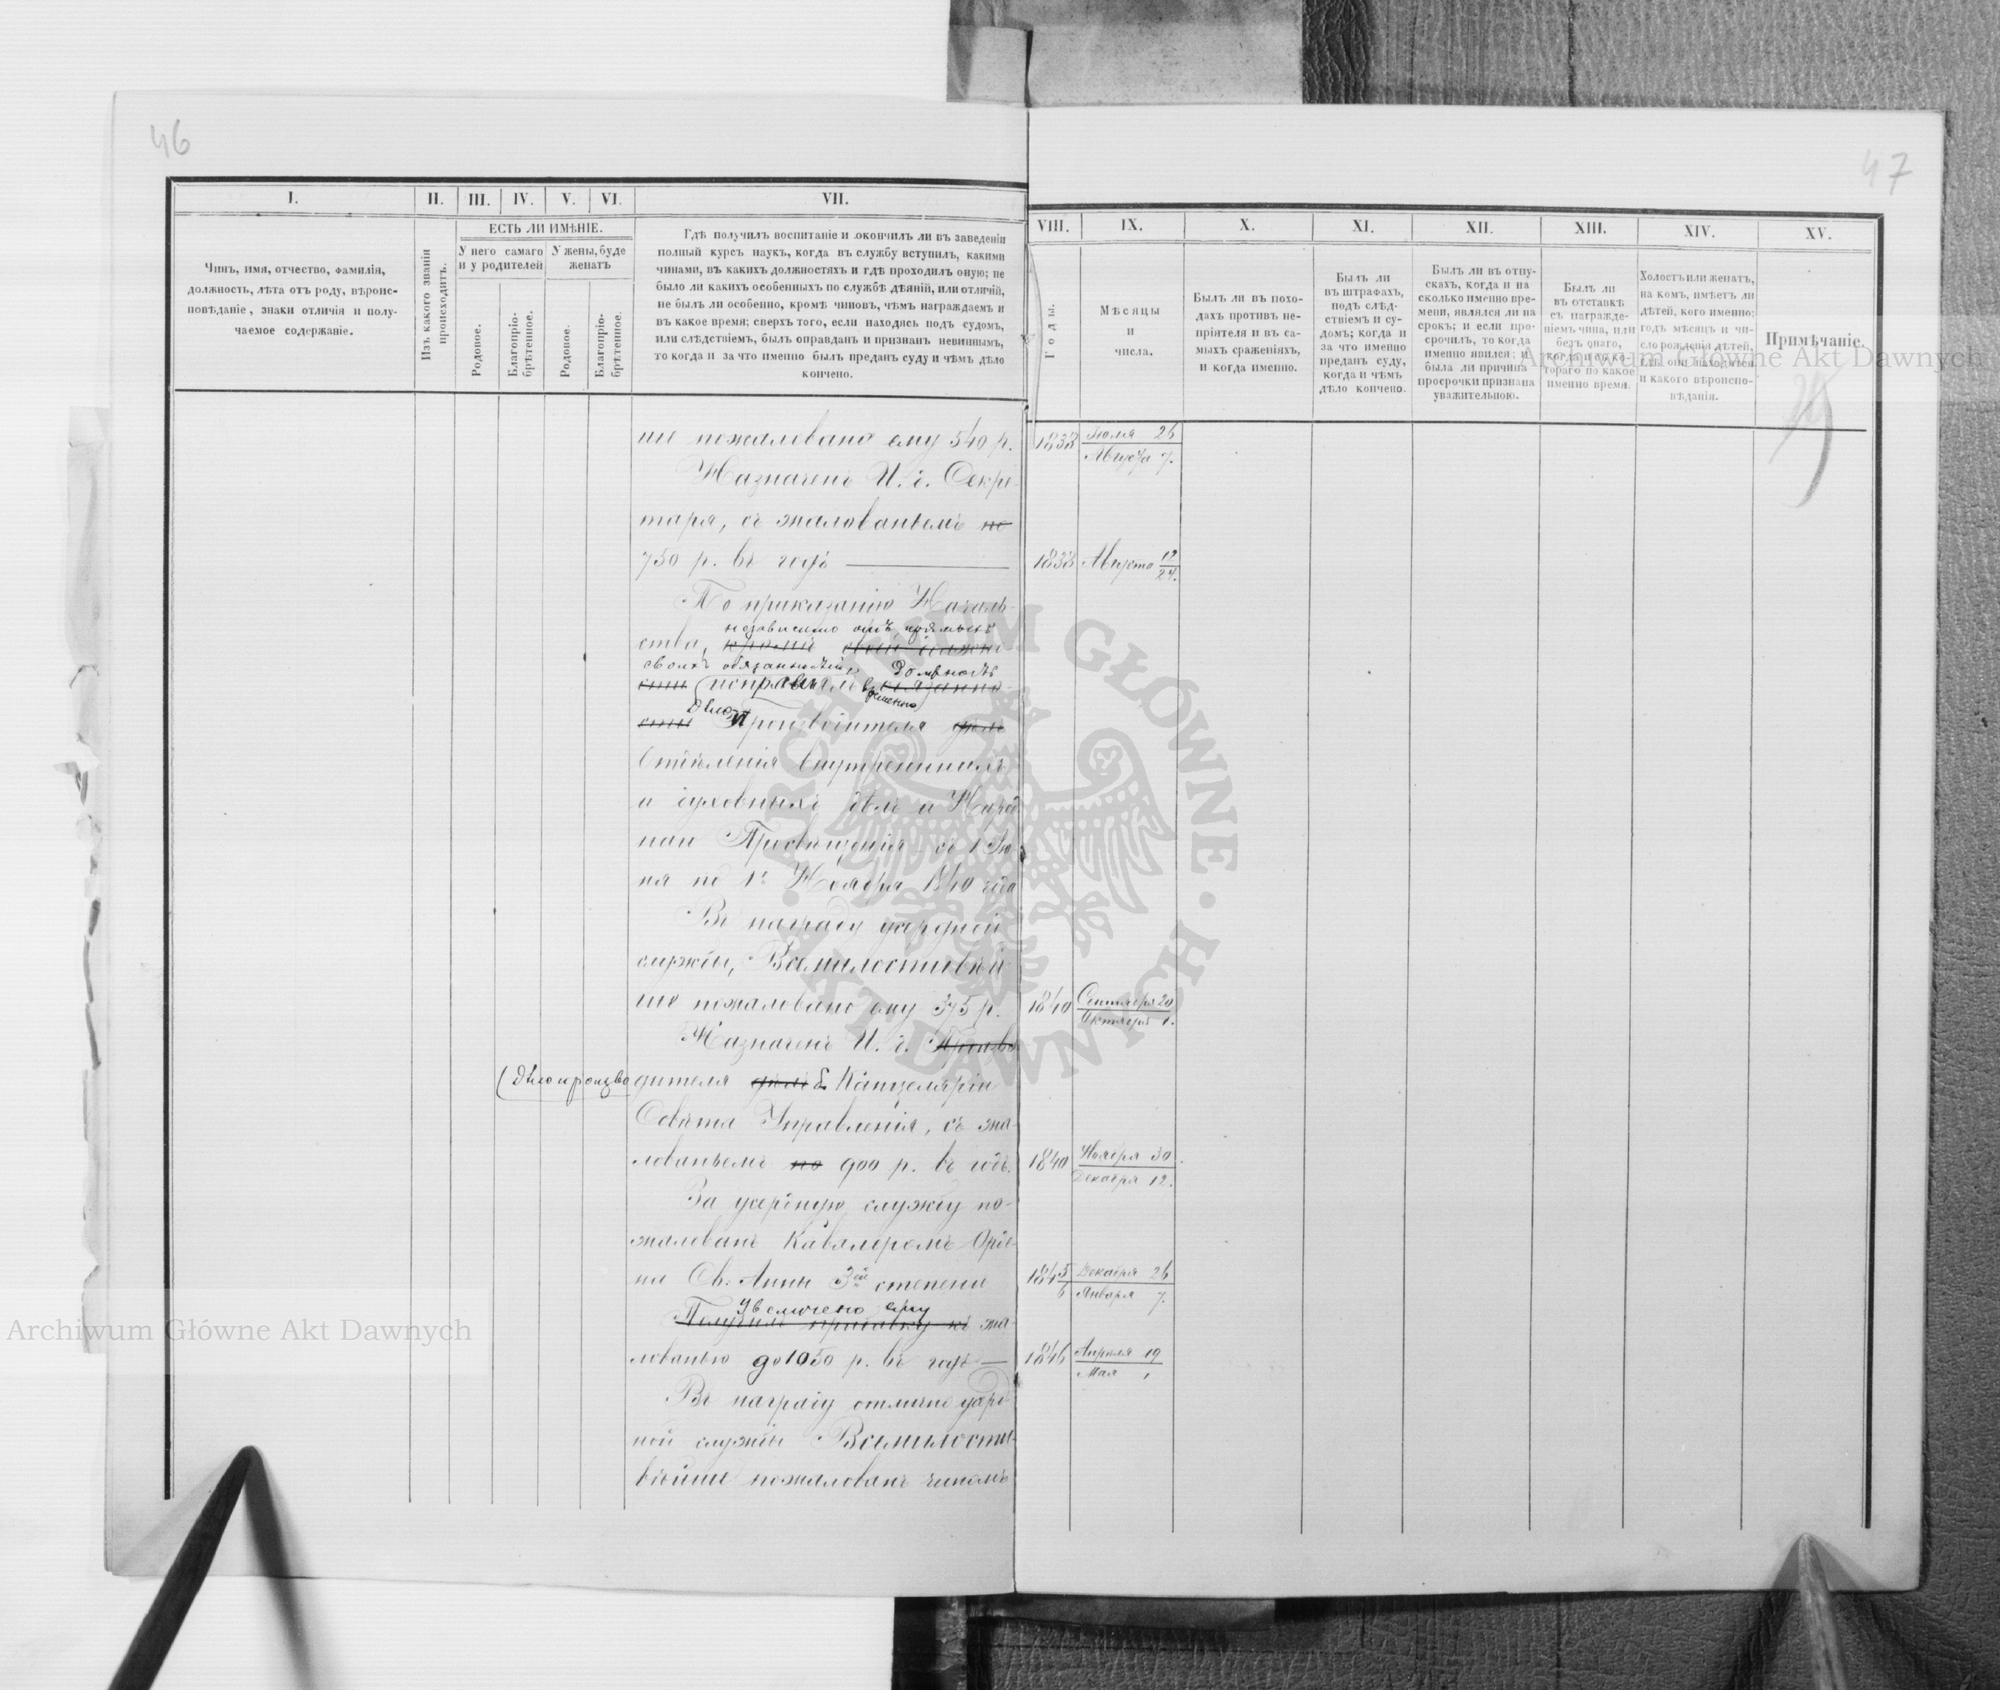 46
47
I.
II.
III.
IV.
V.
VI.
VII.
VIII.
IX.
X.
XI.
XII.
XIII.
XIV.
XV.
Чинъ, имя, отчество, фамилія,
должность, лѣта отъ роду, вѣроис-
повѣданіе, знаки отличія и полу-
чаемое содержаніе.
Изъ какого званія
происходитъ.
ЕСТЬ ЛИ ИМѢНІЕ.
У него самаго
и у родителей
У жены, буде
женатъ
Родовое.
Благопріо-
брѣтенное.
Родовое.
Благопріо-
брѣтенное.
Гдѣ получилъ воспитаніе и окончилъ ли въ заведеніи
полный курсъ наукъ, когда въ службу вступилъ, какими
чинами, въ какихъ должностяхъ и гдѣ проходилъ оную; не
было ли какихъ особенныхъ по службѣ дѣяній, или отличій,
не былъ ли особенно, кромѣ чиновъ, чѣмъ награждаемъ и
въ какое время; сверхъ того, если находясь подъ судомъ,
или слѣдствіемъ, былъ оправданъ и признанъ невиннымъ,
то когда и за что именно былъ преданъ суду и чѣмъ дѣло
кончено.
Годы.
Мѣсяцы
и
числа.
Былъ ли въ похо-
дахъ противъ не-
пріятеля и въ са-
мыхъ сраженіяхъ,
и когда именно.
Былъ ли
въ штрафахъ,
подъ слѣд-
ствіемъ и су-
домъ; когда и
за что именно
преданъ суду,
когда и чѣмъ
дѣло кончено.
Былъ ли въ отпу-
скахъ, когда и на
сколько именно вре-
мени, явился ли на
срокъ; и если про-
срочилъ, то когда
именно явился; и
была ли причина
просрочки признана
уважительною.
Былъ ли
въ отставкѣ
съ награжде-
ніемъ чина, или
безъ онаго,
когда и съ ко-
тораго по какое
именно время.
Холостъ или женатъ,
на комъ, имѣетъ ли
дѣтей, кого именно;
годъ мѣсяцъ и чи-
сло рожденія дѣтей,
гдѣ они находятся
и какого вѣроиспо-
вѣданія.
Примѣчаніе.
ше пожаловано ему 540 р.
1838 Іюля 26
Августа 7.
Назначенъ И. д. Секре-
таря, съ жалованьемъ по
750 р. въ годъ
1838 Августа 12
24.
По приказанію Началь-
независимо отъ прямыхъ
ства, кромѣ своей должно
своихъ обязанностей Должность
исправлялъ временно
Дѣло Производителя дѣлъ
Отдѣленія внутреннихъ
и духовныхъ дѣлъ и Народ
наго Просвѣщенія съ 1 Ію-
ня по 1е Ноября 1840 года
Въ награду усердной
службы, Всемилостивѣй-
ше пожаловано ему 375 р.
1840 Сентября 20
Октября 2.
Назначенъ И. д. Произво
(Дѣлопроизво дителя дѣлъ Канцеляріи
Совѣта Управленія, съ жа-
лованьемъ по 900 р. въ годъ.
1840 Ноября 30
Декабря 12.
За усердную службу по-
жалованъ Кавалеромъ Орде-
на Св. Анны 3ей степени
1845 Декабря 26
6 Января 7.
увеличено ему
Получилъ прибавку къ жа-
лованью до 1050 р. въ годъ
1846 Апрѣля 19
Мая 1
Въ награду отлично усерд
ной службы Всемилости-
вѣйше пожалованъ чиномъ
Archiwum Główne Akt Dawnych
Archiwum Główne Akt Dawnych
ARCHIWUM GŁÓWNE AKT DAWNYCH